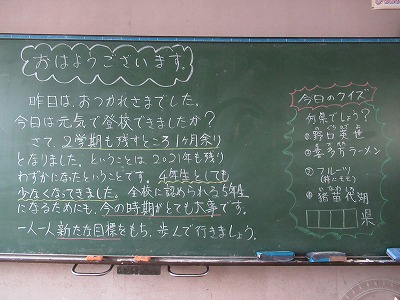 おはようございます。
昨日は、おつかれさまでした。
今日は元気で登校できましたか?
さて、2学期も残すところ1ヶ月余り
となりました。ということは2021年も残り
わずかになったということです。4年生としても
少なくなってきました。全校に認められる5年生
になるためにも、今の時期がとても大事です。
一人一人新たな目標をもち、歩んで行きましょう。
今日のクイズ
何県でしょう?
野口英世
のぐちひでよ
喜多方ラーメン
きたかた
フルーツ
(特にもも)
猪苗代湖
いなわしろこ
県